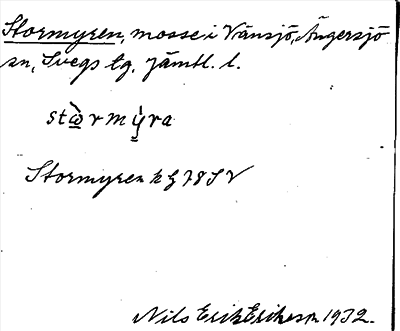 Stormyren, mosse i Vänsjö, Ängersjö
sn, Svegs tg, Jämtl. l.
stὼ̱rmý̱ra
Stormyren h G 78 S V
Nils Erik Eriksson 1932.